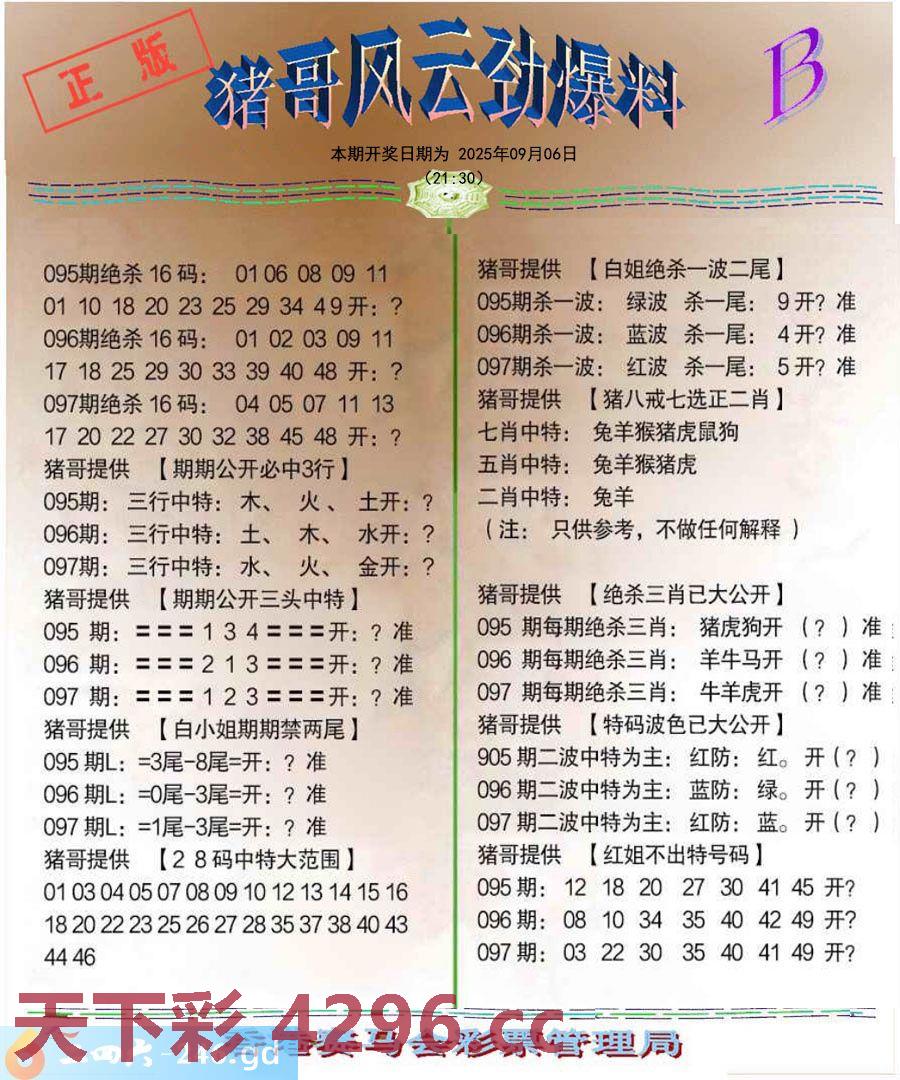 正版
猪哥风云劲爆料
B
本期开奖日期为 2025年09月06日
(21:30)
095期绝杀16码： 01 06 08 09 11
01 10 18 20 23 25 29 34 49开：?
096期绝杀16码： 01 02 03 09 11
17 18 25 29 30 33 39 40 48 开：?
097期绝杀16码： 04 05 07 11 13
17 20 22 27 30 32 38 45 48 开：?
猪哥提供 【期期公开必中3行】
095期： 三行中特： 木、 火、 土开：?
096期： 三行中特： 土、 木、 水开：?
097期： 三行中特： 水、 火、 金开：?
猪哥提供 【期期公开三头中特】
095 期：===134===开：? 准
096 期：===213===开：? 准
097 期：===123===开：? 准
猪哥提供 【白小姐期期禁两尾】
095期L：=3尾-8尾=开：? 准
096期L：=0尾-3尾=开：? 准
097期L：=1尾-3尾=开：? 准
猪哥提供 【28码中特大范围】
01 03 04 05 07 08 09 10 12 13 14 15 16
18 20 22 23 25 26 27 28 35 37 38 40 43
44 46
猪哥提供 【白姐绝杀一波二尾】
095期杀一波： 绿波 杀一尾： 9开? 准
096期杀一波： 蓝波 杀一尾： 4开? 准
097期杀一波： 红波 杀一尾： 5开? 准
猪哥提供 【猪八戒七选正二肖】
七肖中特： 兔羊猴猪虎鼠狗
五肖中特： 兔羊猴猪虎
二肖中特： 兔羊
（注： 只供参考，不做任何解释 ）
猪哥提供 【绝杀三肖已大公开】
095 期每期绝杀三肖： 猪虎狗开 （?）准
096 期每期绝杀三肖： 羊牛马开 （?）准
097 期每期绝杀三肖： 牛羊虎开 （?）准
猪哥提供 【特码波色已大公开】
905期二波中特为主： 红防： 红。 开（?）
096期二波中特为主： 蓝防： 绿。 开（?）
097期二波中特为主： 红防： 蓝。 开（?）
猪哥提供 【红姐不出特号码】
095期： 12 18 20 27 30 41 45 开?
096期： 08 10 34 35 40 42 49 开?
097期： 03 22 30 35 40 41 49 开?
天下彩 4296.cc
马会彩票管理局